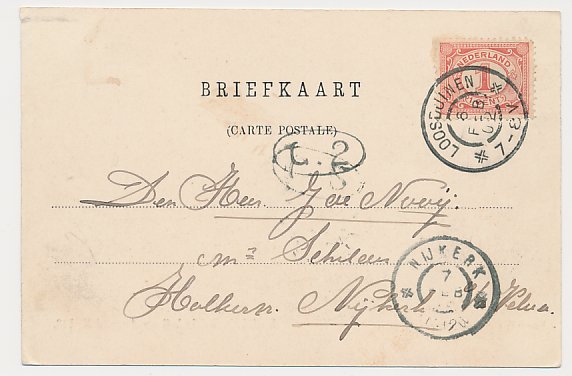 BRIEFKAART
(CARTE POSTALE)
NEDERLAND
1
CENT
LOOSDUINEN
6 FEB 02
7-8V
C.2
Den Heer J de Nooij.
mr Schilder
Holkerv. Nijkerk o/d Veluw.
NIJKERK
7 FEB